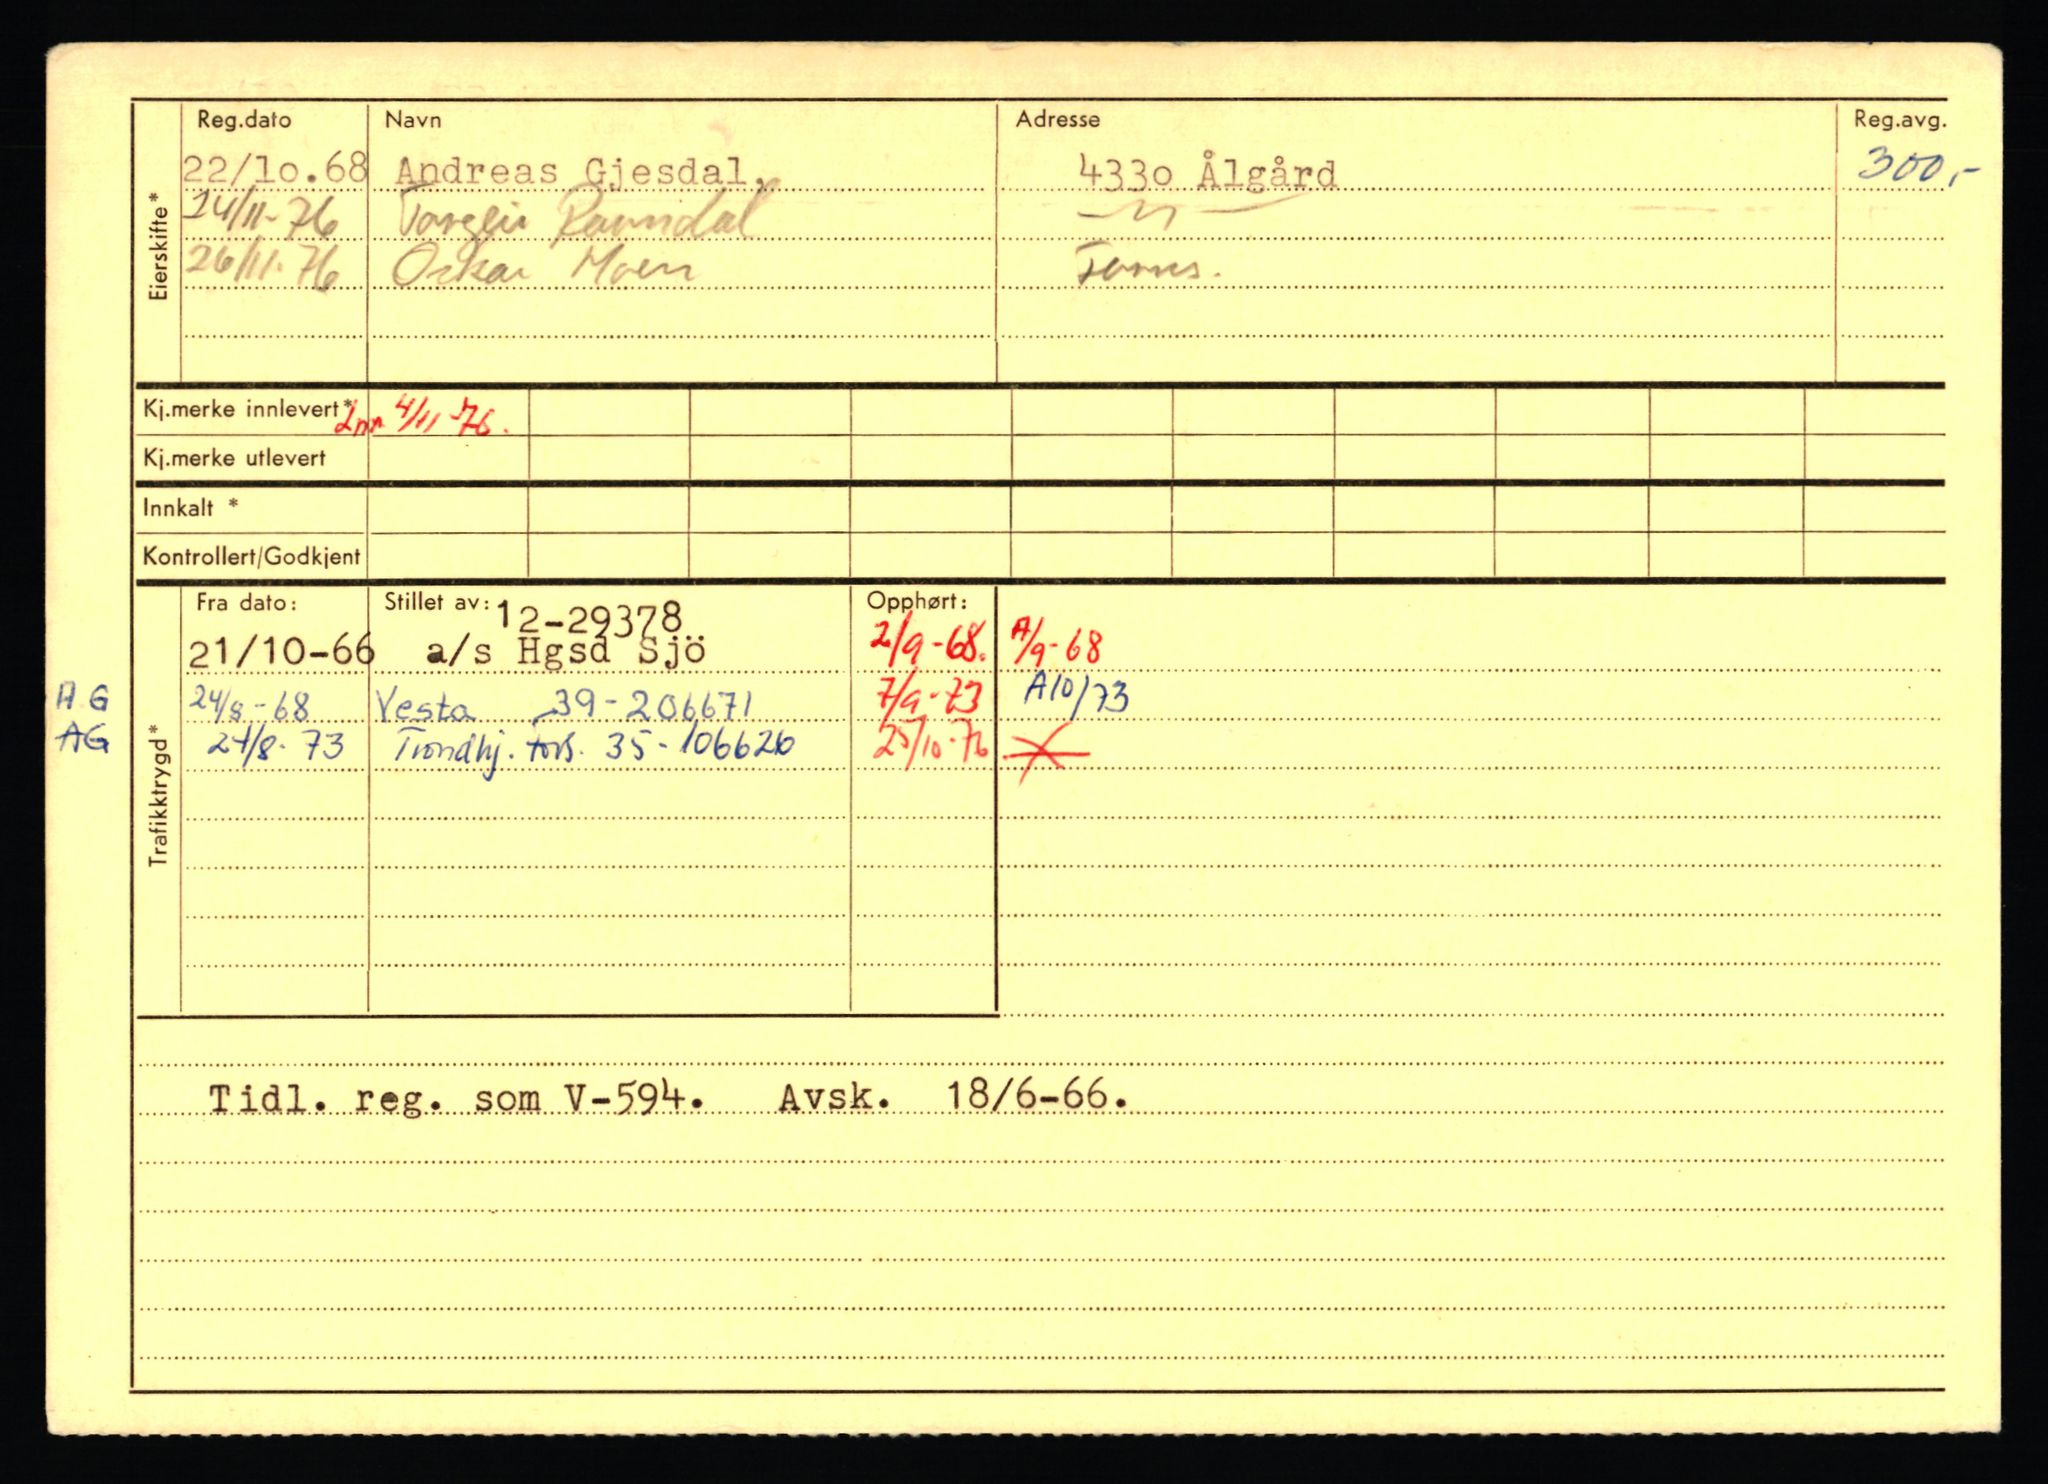 Reg.dato Navn Adresse Reg.avg.
22/10.68 Andreas Gjesdal. 4330 Ålgård 300,-
24/11-76 Torgeir Ravndal —"—
26/11-76 Oskar Moen
Eierskifte*
Kj.merke innlevert* Inn 4/11-76.
Kj.merke utlevert
Innkalt *
Kontrollert/Godkjent
Fra dato: Stillet av: 12-29378 Opphørt:
21/10-66 a/s Hgsd Sjö 2/9-68. A/9-68
A G 24/8-68 Vesta 39-206671 7/9-73 A10/73
AG 24/8-73 Trondhj. fors. 35-106626 25/10-76
Trafikktrygd*
Tidl. reg. som V-594. Avsk. 18/6-66.